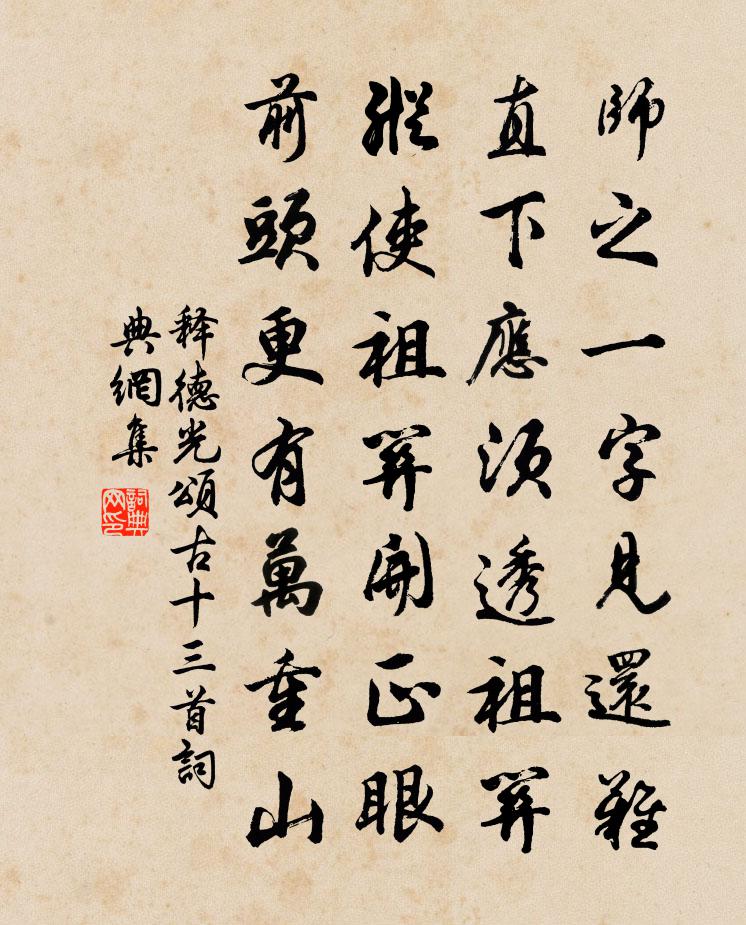 師之一字見還難
直下應須透祖關
縱使祖關開正眼
前頭更有萬重山
释德光頌古十三首詞
典網集
詞典
网印